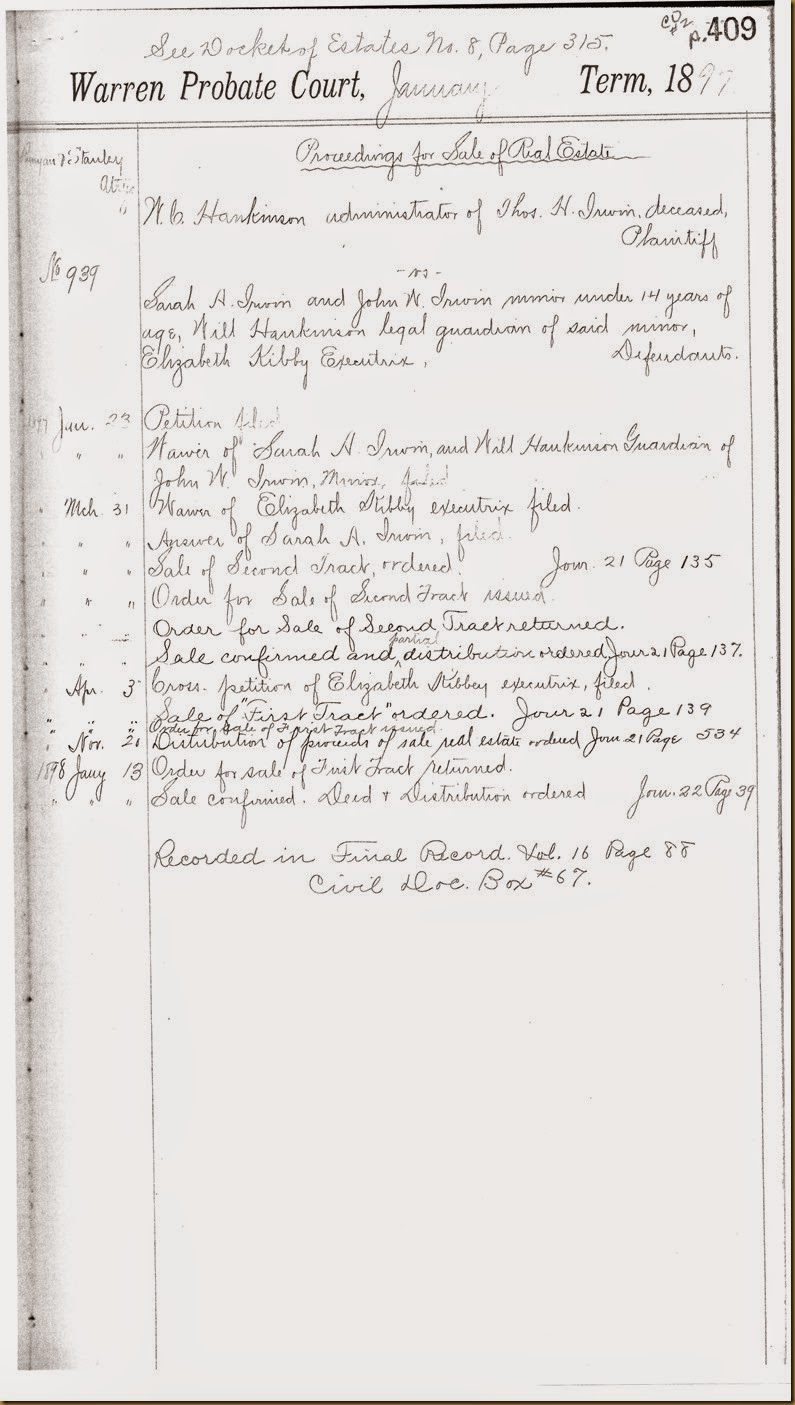 CD2 p.409
See Docket of Estates No. 8, Page 315.
Warren Probate Court, January Term, 1897
Proceedings for Sale of Real Estate
Runyan & Stanley
Attys
W. C. Hankinson administrator of Thos. H. Irwin, deceased,
Plaintiff
No 939
-vs-
Sarah A. Irwin and John W. Irwin minor under 14 years of
age, Will Hankinson legal guardian of said minor,
Elizabeth Kibby Executrix, Defendants.
1897 Jan. 23 Petition filed
" " " Waiver of Sarah A. Irwin, and Will Hankinson Guardian of
John W. Irwin, Minor, filed
" Mch 31 Waiver of Elizabeth Stibby executrix filed.
" " " Answer of Sarah A. Irwin, filed.
" " " Sale of Second Tract, ordered. Jour. 21 Page 135
" " " Order for Sale of Second Tract issued.
" " " Order for Sale of Second Tract returned.
" " " Sale confirmed and partial distribution ordered. Jour 21 Page 137.
" Apr. 3 Cross-petition of Elizabeth Kibbey executrix, filed.
" " " Sale of "First Tract" ordered. Jour 21 Page 139
Order for Sale of First Tract issued.
" Nov. 20 Distribution of proceeds of sale real estate ordered Jour. 21 Page 534
1898 Jany 13 Order for sale of First Tract returned.
" " " Sale confirmed. Deed & Distribution ordered Jour. 22 Page 39
Recorded in Final Record. Vol. 16 Page 88
Civil Doc. Box #67.